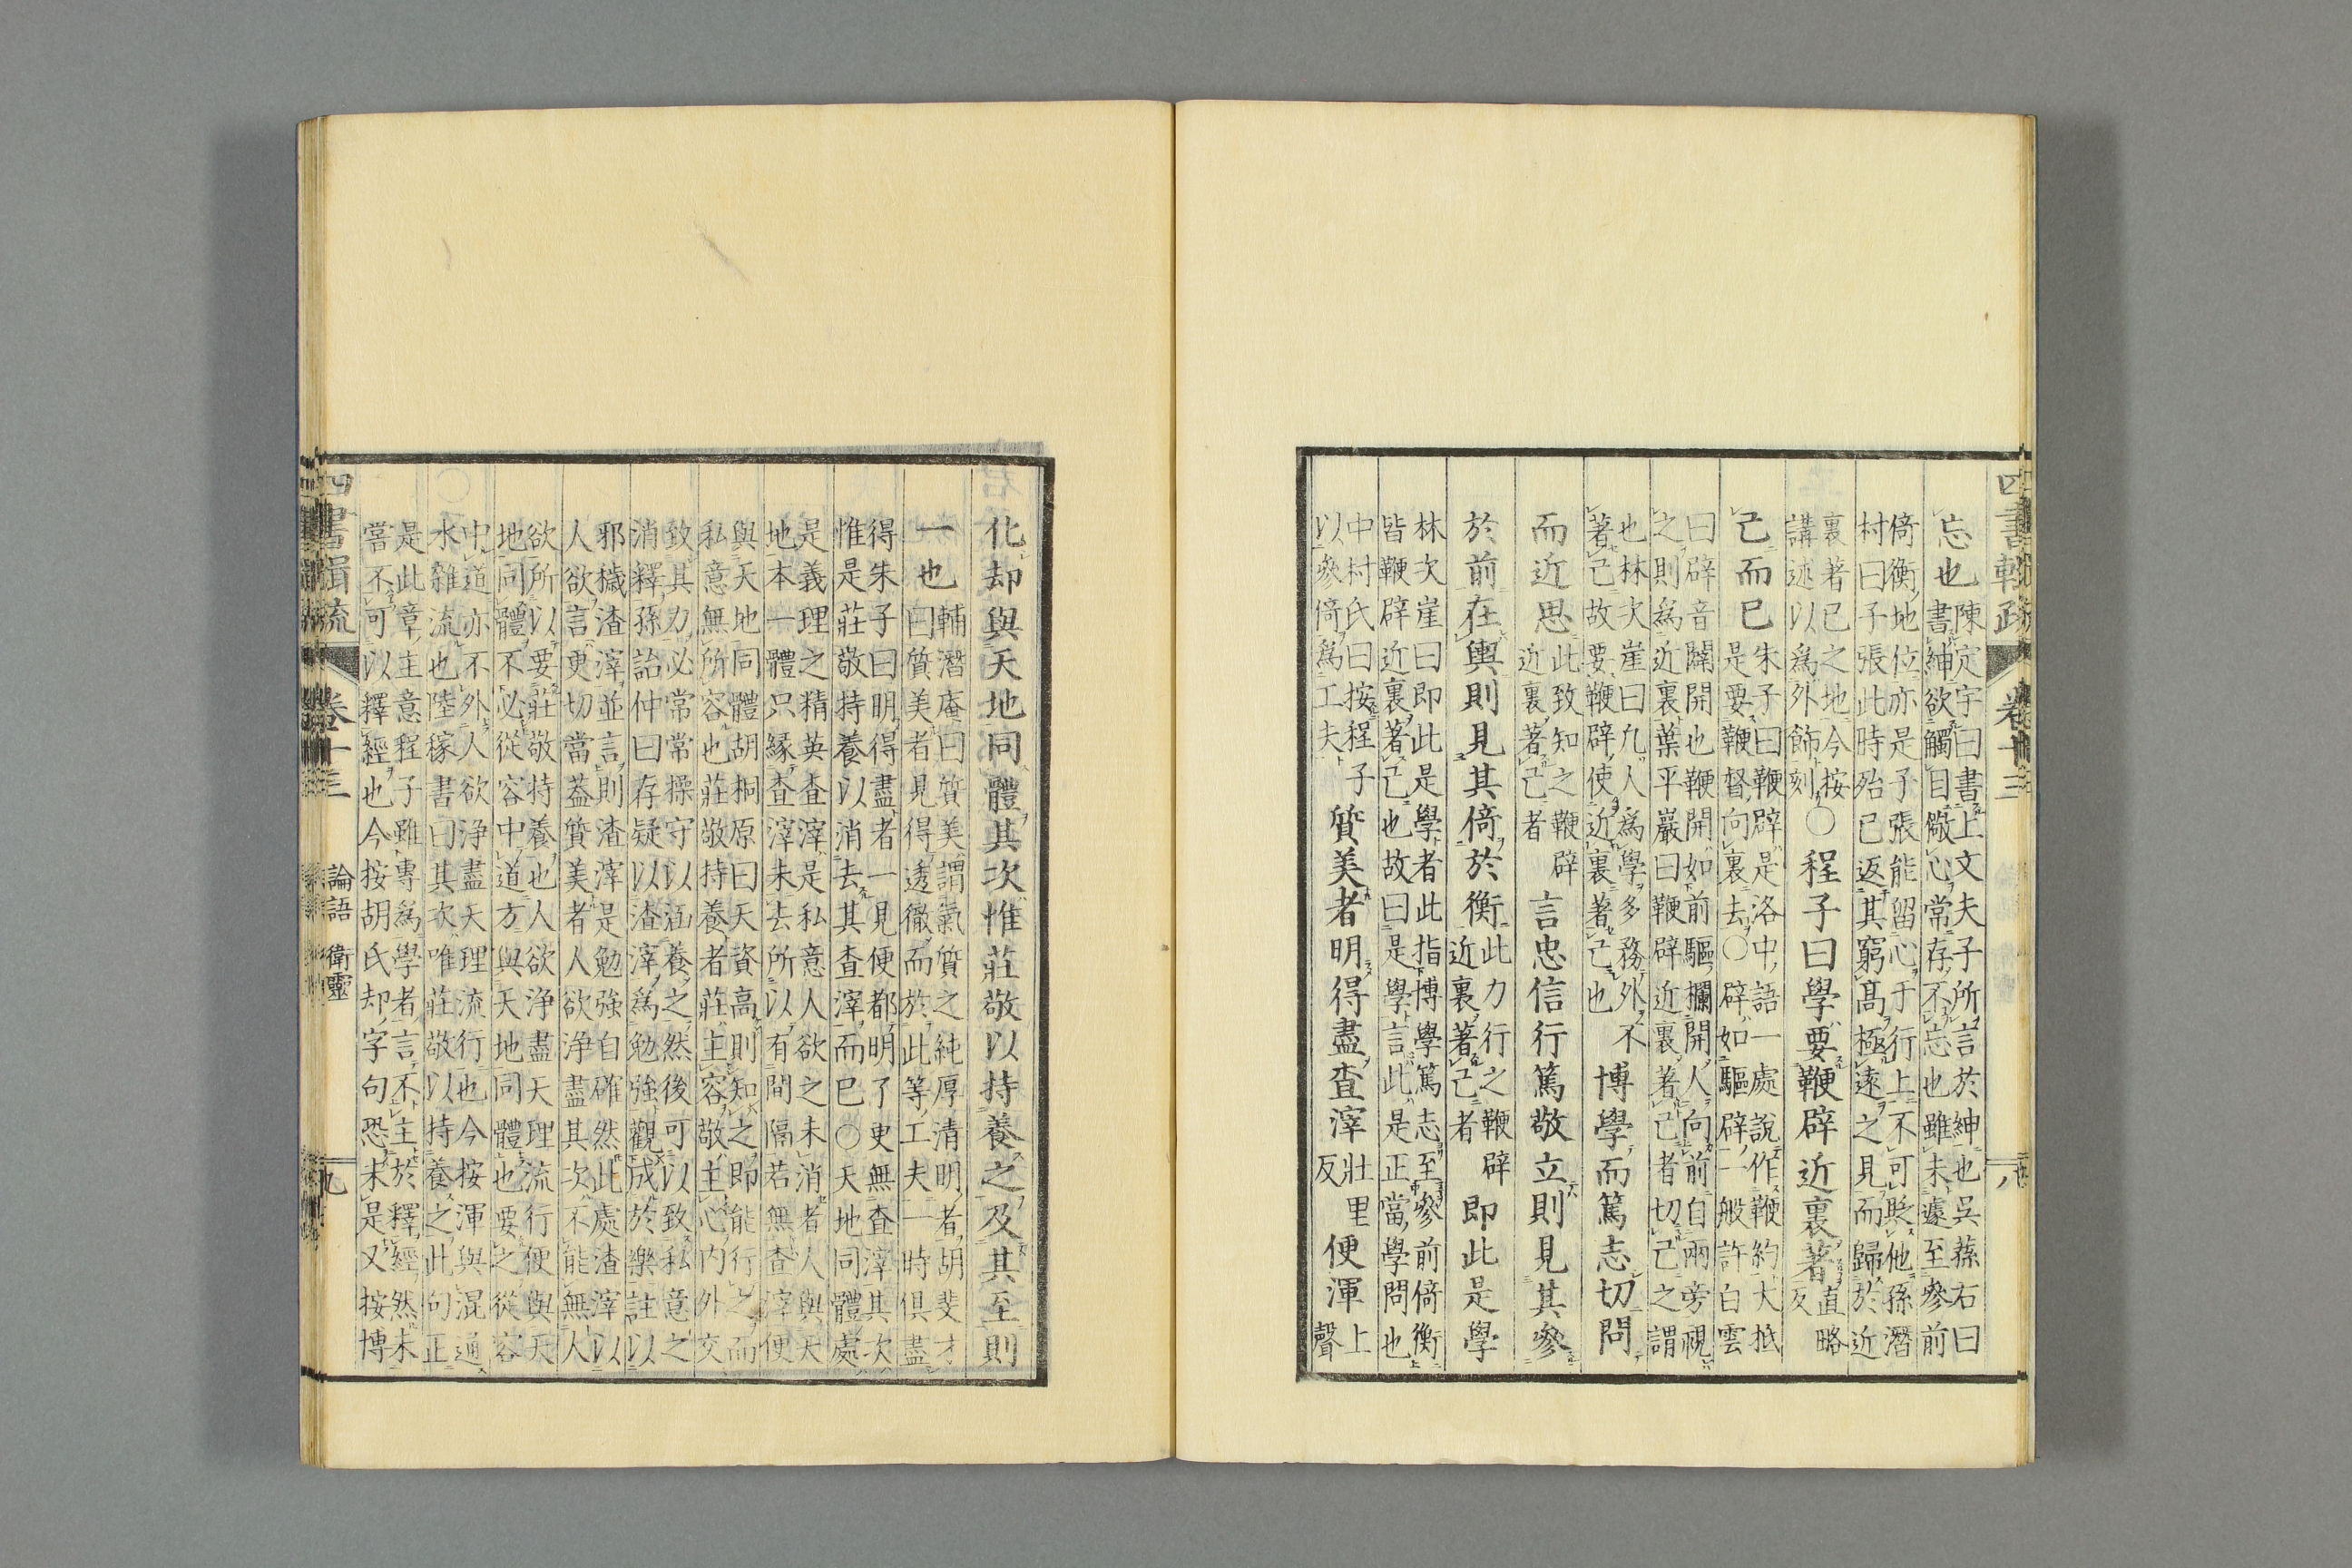 忘也陳定宇曰書上文夫子所言於紳也吳蓀右曰
書紳欲觸目儆心常存不忘也雖未遽至參前
倚衡地位亦是子張能留心于行上不可貶他孫潛
村曰子張此時殆已返其窮高極遠之見而歸於近
裏著己之地今按
講述以爲外飾刻○程子曰學要鞭辟近裏著直略
反
己而已朱子曰鞭辟是洛中語一處說作鞭約大抵
是要鞭督向裏去○辟如驅辟一般許白雲
曰辟音闢開也鞭開如前驅攔開人向前自兩旁視
之則爲近裏葉平巖曰鞭辟近裏著己者切己之謂
也林次崖曰凡人爲學多務外不
著己故要鞭辟使近裏著己也博學而篤志切問
而近思此致知之鞭辟
近裏著己者言忠信行篤敬立則見其參
於前在輿則見其倚於衡此力行之鞭辟
近裏著己者即此是學
林次崖曰即此是學者此指博學篤志至參前倚衡
皆鞭辟近裏著己也故曰是學言此是正當學問也
中村氏曰按程子
以參倚爲工夫質美者明得盡査滓壯里
反便渾上
聲
四書輯疏
卷十三
八
化却與天地同體其次惟莊敬以持養之及其至則
一也輔潛庵曰質美謂氣質之純厚清明者胡斐才
曰質美者見得透徹而於此等工夫一時俱盡
得朱子曰明得盡者一見便都明了更無査滓其次
惟是莊敬持養以消去其査滓而已○天地同體處
是義理之精英査滓是私意人欲之未消者人與天
地本一體只緣査滓未去所以有間隔若無査滓便
與天地同體胡桐原曰天資高則知之即能行之而
私意無所容也莊敬持養者莊主容敬主心內外交
致其力必常常操守以涵養之然後可以致私意之
消釋孫詒仲曰存疑以渣滓爲勉強觀成於樂註以
邪穢渣滓並言則渣滓是勉強自確然此處渣滓以
人欲言更切當蓋質美者人欲淨盡其次不能無人
欲所以要莊敬持養也人欲淨盡天理流行便與天
地同體不必從容中道方與天地同體也要之從容
中道亦不外人欲淨盡天理流行也今按渾與混通
水雜流也陸稼書曰其次唯莊敬以持養之此句正
是此章主意程子雖專爲學者言不主於釋經然未
嘗不可以釋經也今按胡氏却字句恐未是又按博
四書輯疏
卷十三
論語 衛靈
九